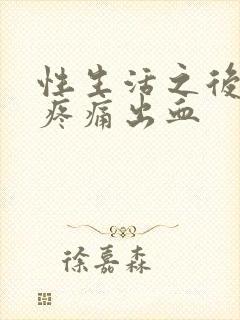 性生活之後
疼痛出血
徐嘉森